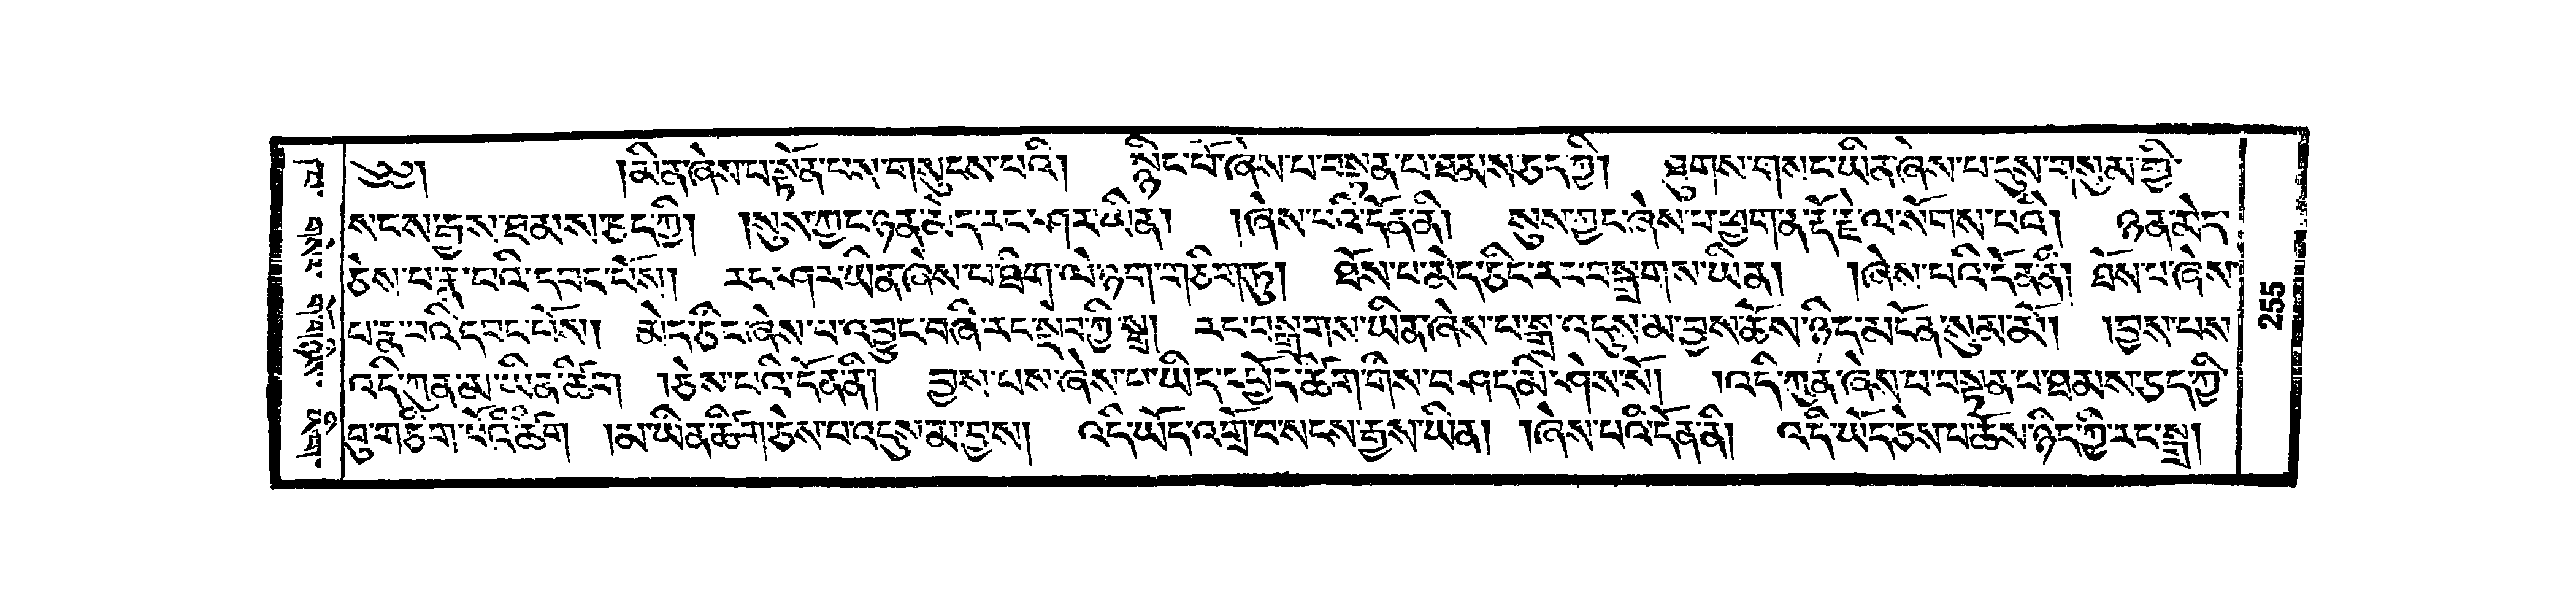 ༄༅། །མིན་ཞེས་པ་སྟོན་པས་གསུངས་པའི། སྙིང་པོ་ཞེས་པ་བསྟན་པ་ཐམས་ཅད་ཀྱི། ཐུགས་གསང་ཡིན་ཞེས་པ་དུས་གསུམ་གྱི་
སངས་རྒྱས་ཐམས་ཅད་ཀྱི། །སུས་ཀྱང་ཉན་མེད་རང་ཤར་ཡིན། །ཞེས་པའི་དོན་ནི། སུས་ཀྱང་ཞེས་པ་ཕྱག་ན་རྡོ་རྗེ་ལ་སོགས་པའི། ཉན་མེད་
ཅེས་པ་རྣ་བའི་དབང་པོས། རང་ཤར་ཡིན་ཞེས་པ་ཐིག་ལེ་ཉག་གཅིག་ཏུ། ཐོས་པ་མེད་ཅིང་རང་བསྒྲགས་ཡིན། །ཞེས་པའི་དོན་ནི། ཐོས་པ་ཞེས་
པ་རྣ་བའི་དབང་པོས། མེད་ཅིང་ཞེས་པ་འབྱུང་བཞི་རང་སྡེབ་ཀྱི་སྒྲ། རང་བསྒྲགས་ཡིན་ཞེས་པ་སྒྲ་འདུས་མ་བྱས་ཆོས་ཉིད་མངོན་སུམ་མོ། །བྱས་པས་
འདི་ཀུན་མ་ཡིན་ཚིག །ཅེས་པའི་དོན་ནི། བྱས་པས་ཞེས་པ་ཡིད་དཔྱོད་ཚིག་གིས་བཤད་མི་ཤེས་སོ། །འདི་ཀུན་ཞེས་པ་བསྟན་པ་ཐམས་ཅད་ཀྱི་
བུ་གཅིག་པོའི་ཚིག །མ་ཡིན་ཚིག་ཅེས་པ་འདུས་མ་བྱས། འདི་ཡོད་འགྲོ་བ་སངས་རྒྱས་ཡིན། །ཞེས་པའི་དོན་ནི། འདི་ཡོད་ཅེས་པ་ཆོས་ཉིད་ཀྱི་རང་སྒྲ།
255